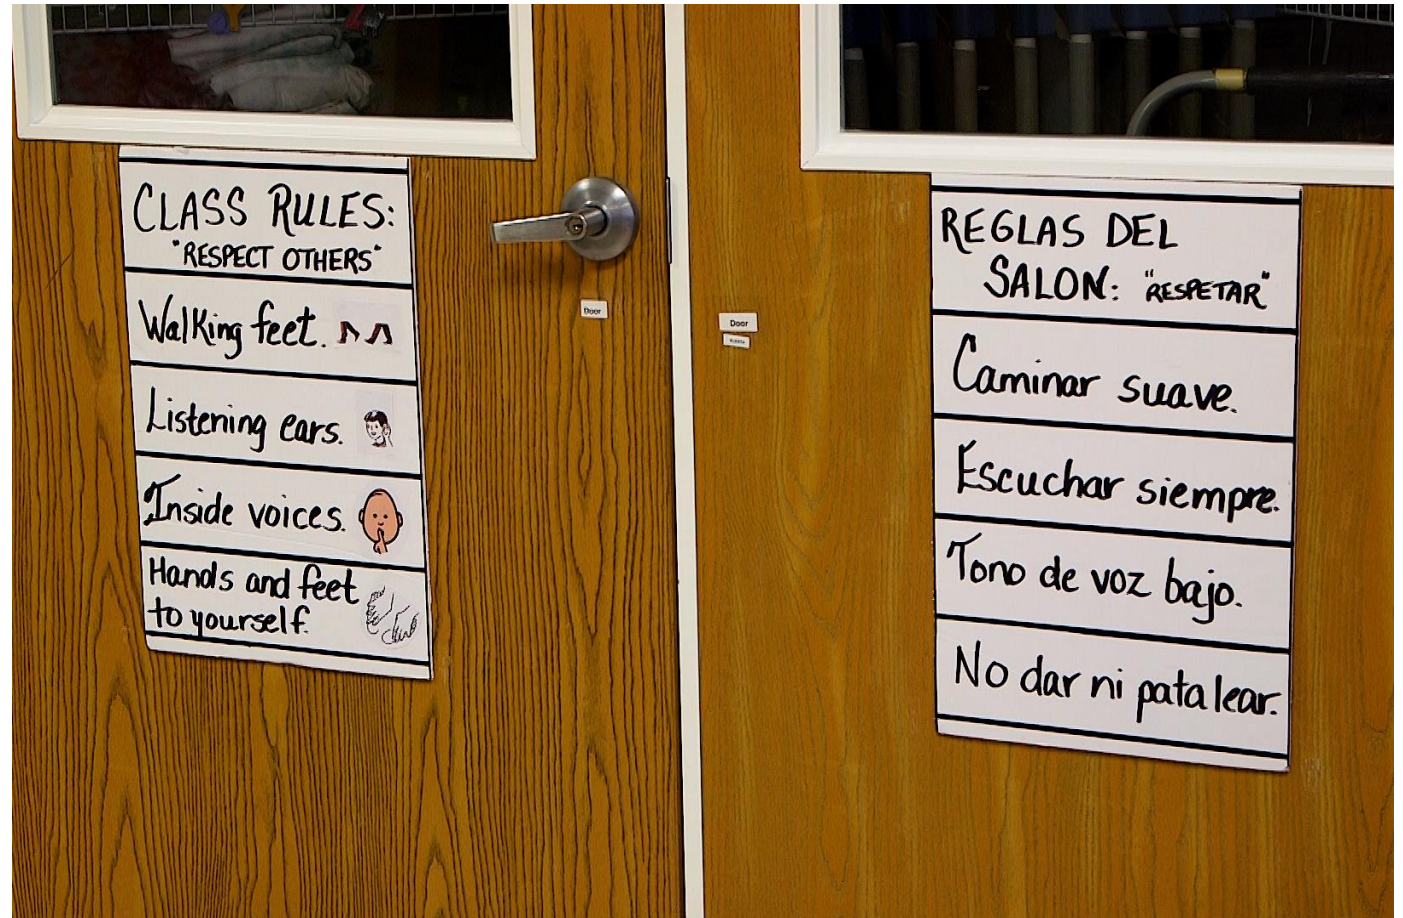 CLASS RULES:
"RESPECT OTHERS"
Walking feet.
Listening ears.
Inside voices.
Hands and feet
to yourself.
Door
Door
REGLAS DEL
SALON: "RESPETAR"
Caminar suave.
Escuchar siempre.
Tono de voz bajo.
No dar ni patalear.